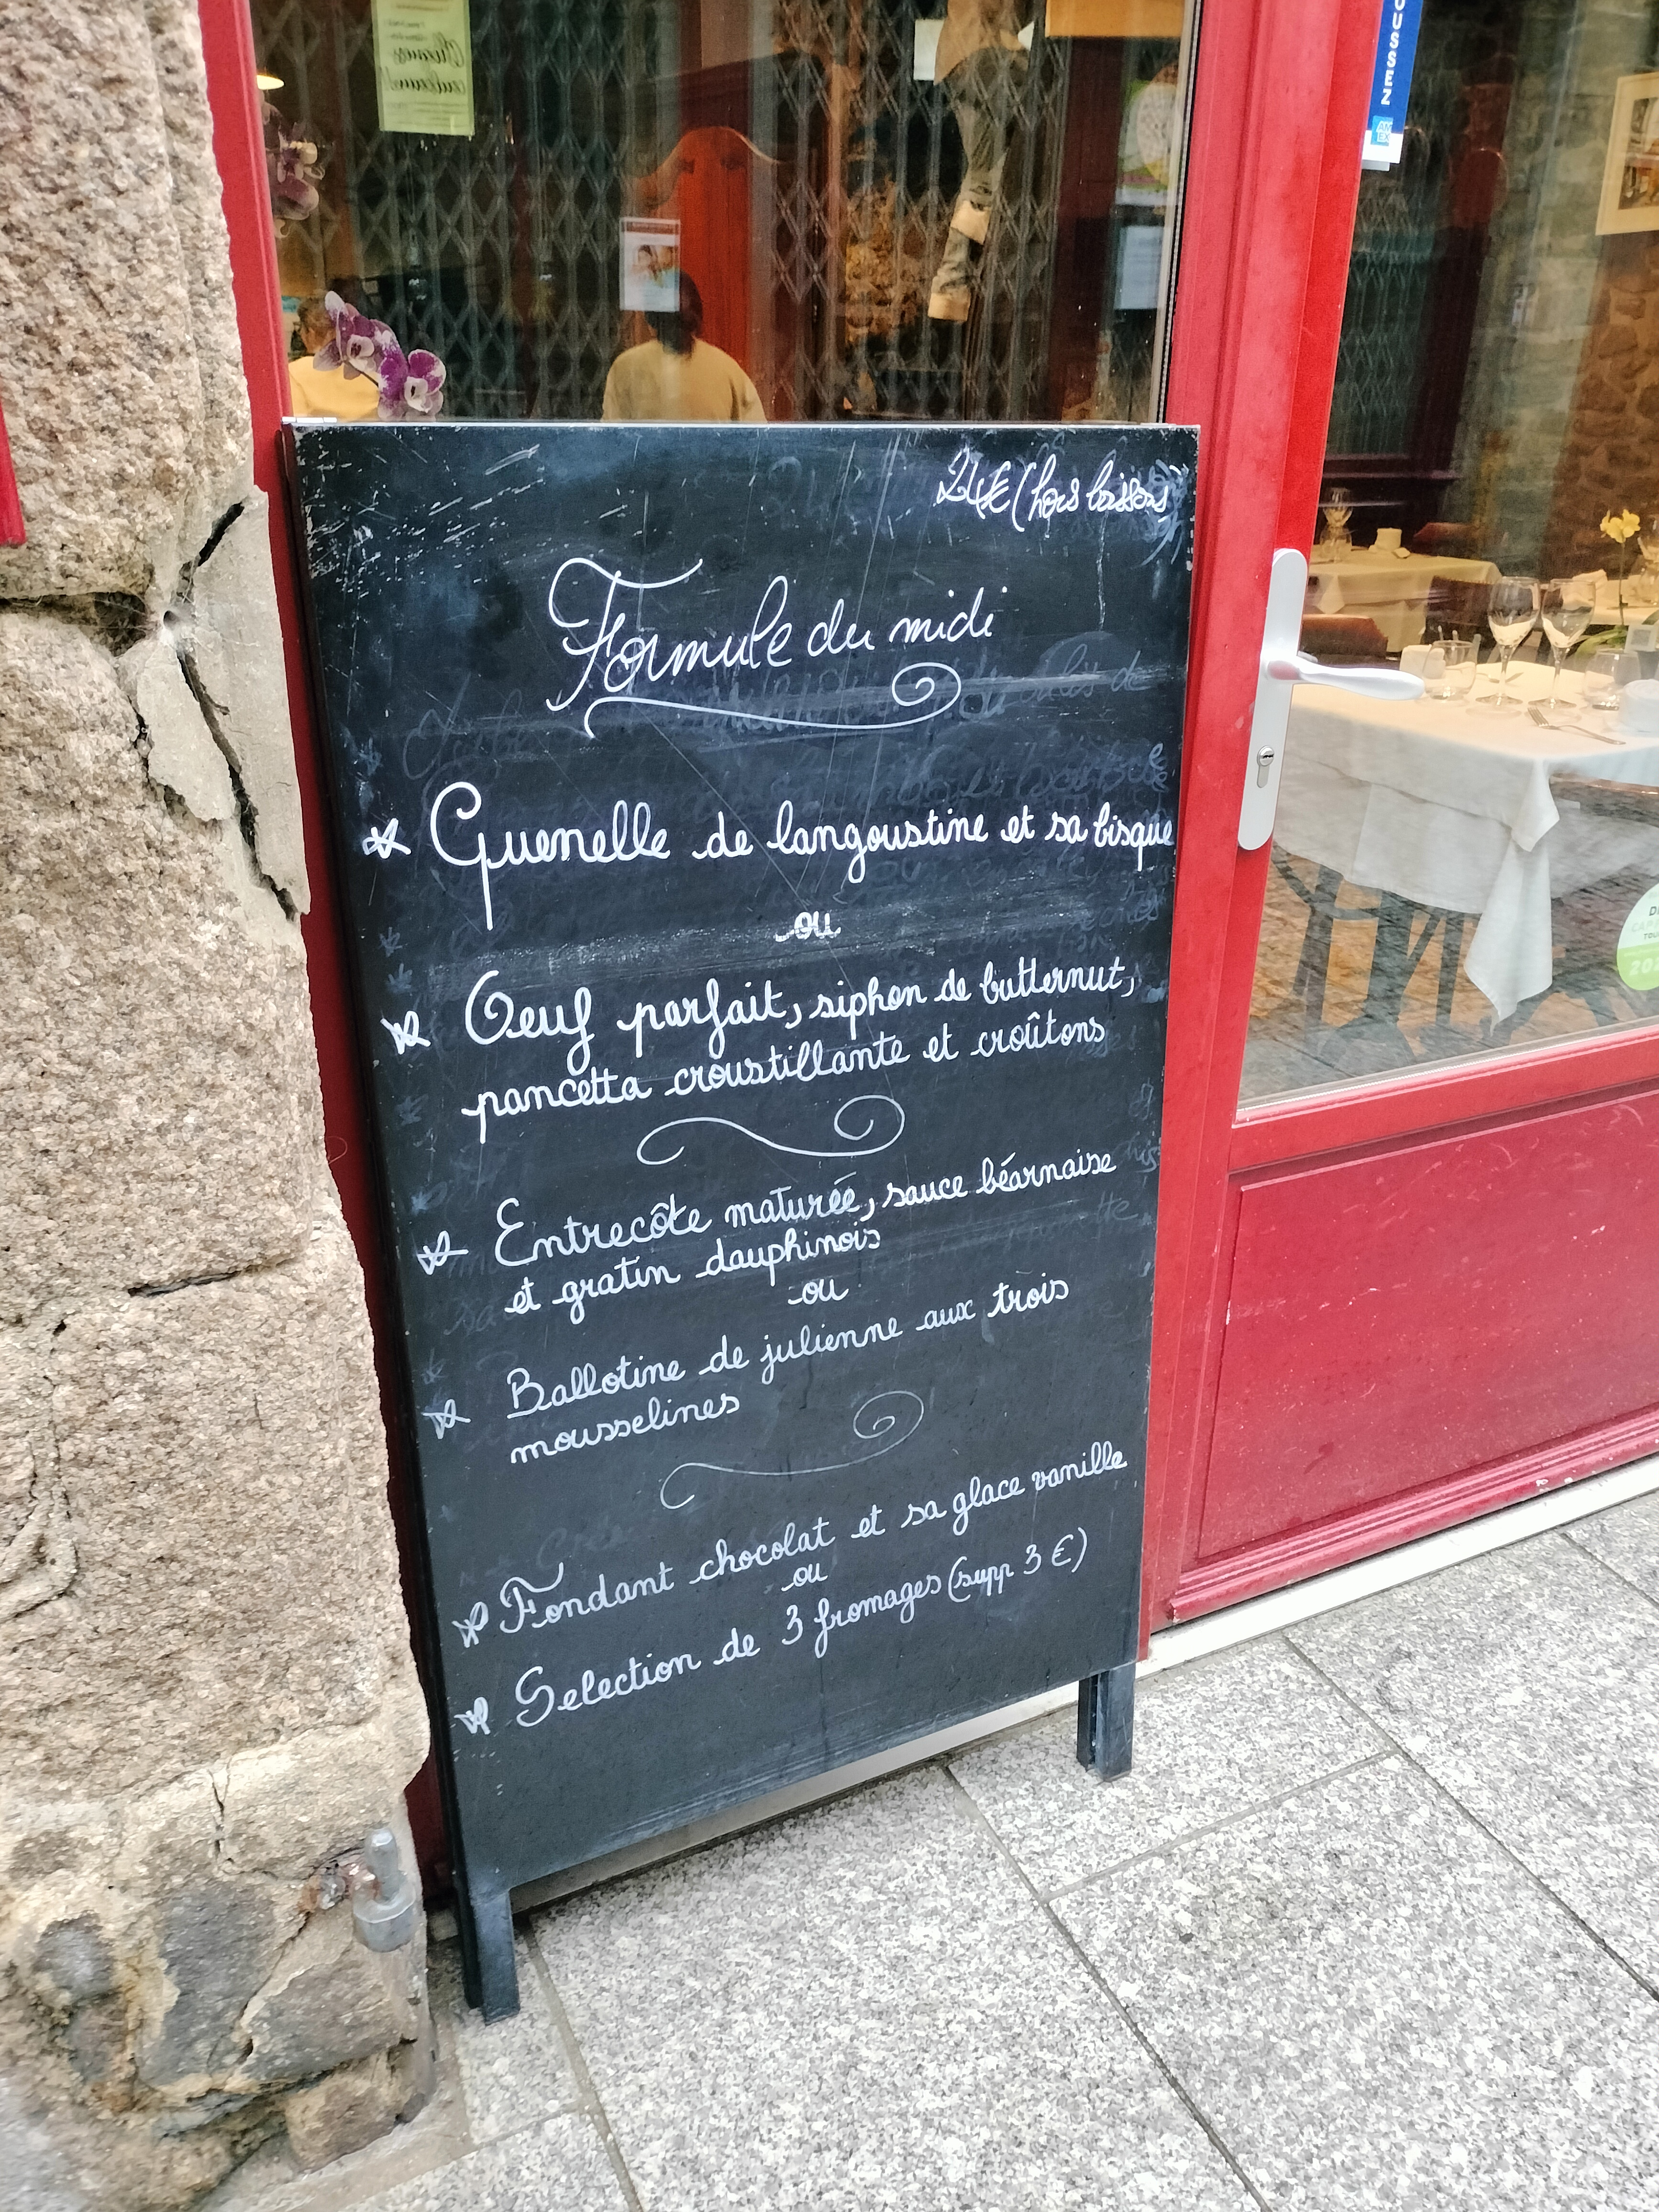 24€ (hors boissons
Formule du midi
Quenelle de langoustine et sa bisque
ou
Oeuf parfait, siphon de butternut,
pancetta croustillante et croûtons
Entrecôte maturée, sauce béarnaise
et gratin dauphinois
ou
Ballotine de julienne aux trois
mousselines
Fondant chocolat et sa glace vanille
ou
Selection de 3 fromages (supp 3 €)
OUSSEZ
AM
EX